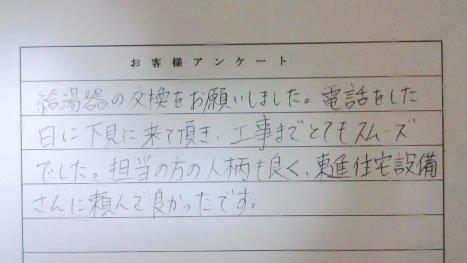 お客様アンケート
給湯器の交換をお願いしました。電話をした
日に下見に来て頂き、工事までとてもスムーズ
でした。担当の方の人柄も良く、東進住宅設備
さんに頼んで良かったです。